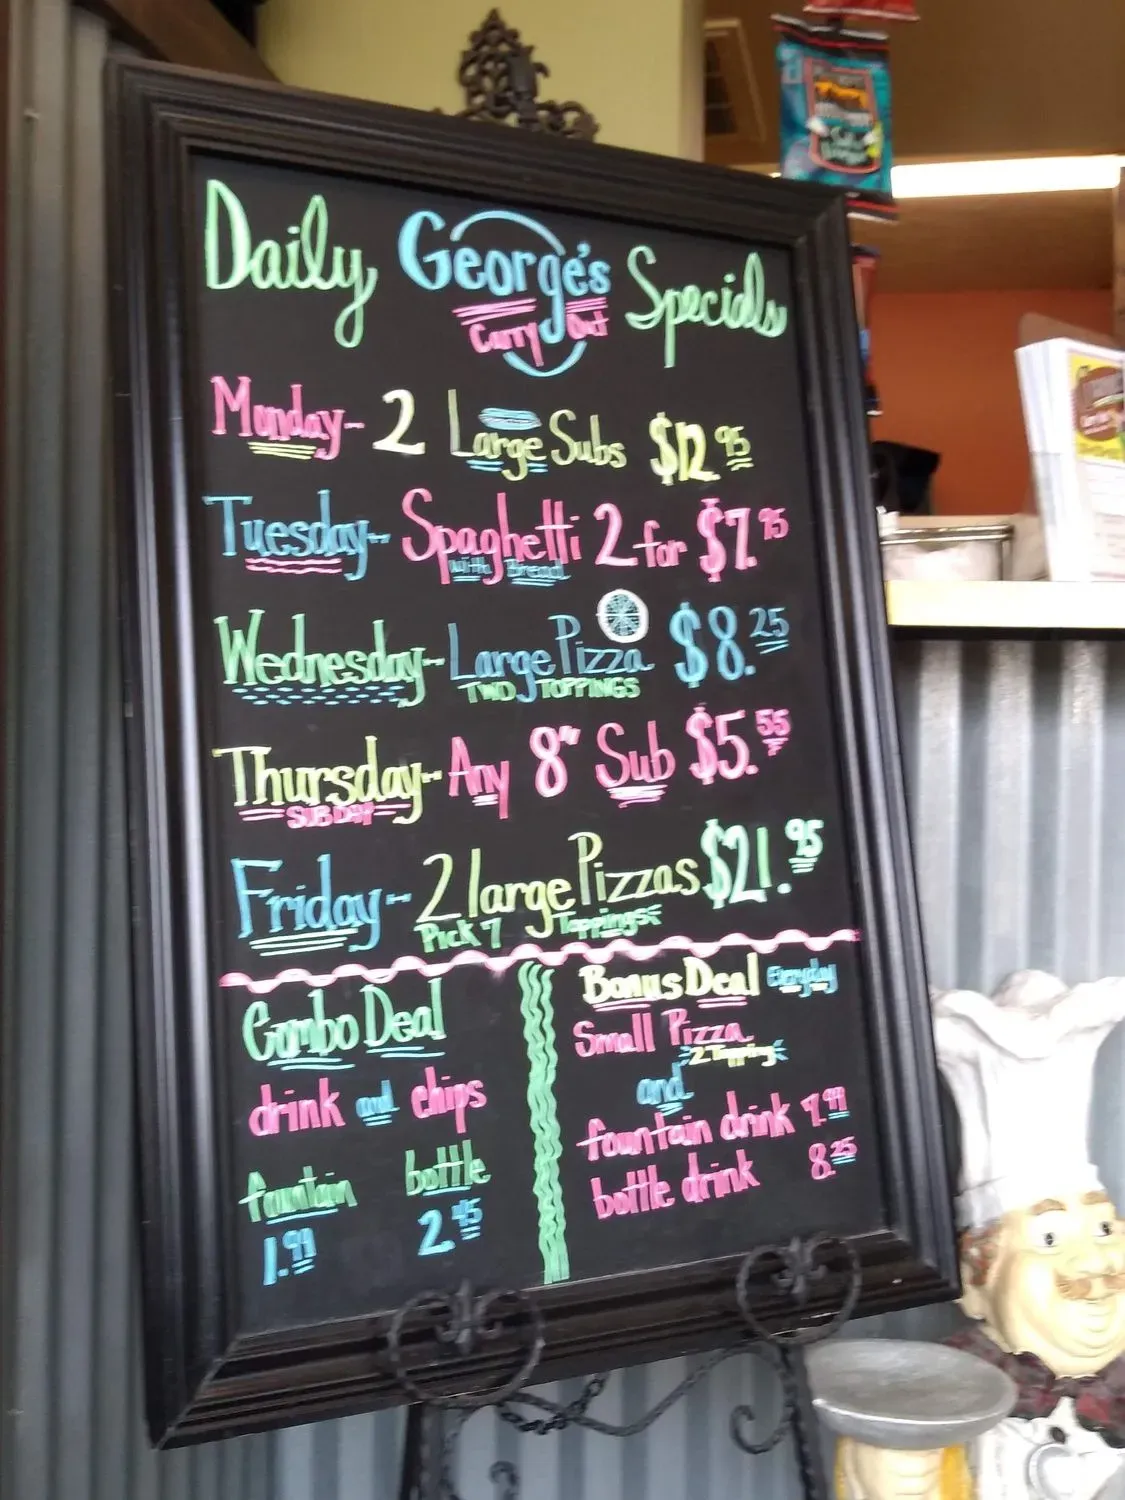 Daily George's Specials
Carry Out
Monday - 2 Large Subs $12.95
Tuesday - Spaghetti 2 for $7.95
with Bread
Wednesday - Large Pizza $8.25
TWO TOPPINGS
Thursday - Any 8" Sub $5.55
SUB DAY
Friday - 2 large Pizzas $21.95
Pick 7 Toppings
Combo Deal
drink and chips
fountain bottle
1.99 2.45
Bonus Deal Everyday
Small Pizza
2 Topping
and
fountain drink 7.99
bottle drink 8.25